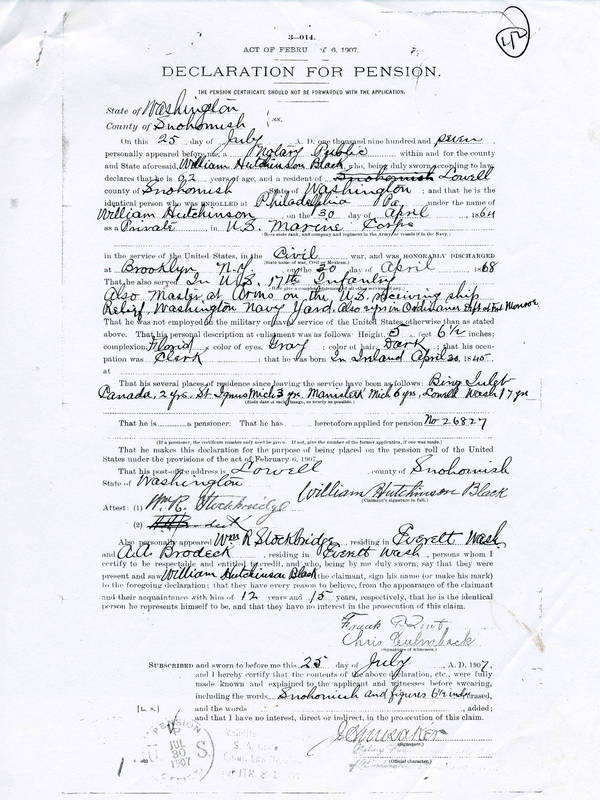 42
3—014.
ACT OF FEBRU 6, 1907.
DECLARATION FOR PENSION.
THE PENSION CERTIFICATE SHOULD NOT BE FORWARDED WITH THE APPLICATION.
State of Washington
County of Snohomish } ss.
On this 25 day of July, A. D. one thousand nine hundred and seven,
personally appeared before me, a Notary Public within and for the county
and State aforesaid, William Hutchinson Black, who, being duly sworn according to law,
declares that he is 62 years of age, and a resident of Snohomish Lowell
county of Snohomish, State of Washington; and that he is the
identical person who was ENROLLED at Philadelphia Pa. under the name of
William Hutchinson, on the 30 day of April, 1864
as a Private, in U.S. Marine Corps
(Here state rank, and company and regiment in the Army, or vessels if in the Navy.)
in the service of the United States, in the Civil war, and was HONORABLY DISCHARGED
(State name of war, Civil or Mexican.)
at Brooklyn N.Y., on the 30 day of April, 1868
That he also served In U.S. 17th Infantry
(Here give a complete statement of all other services, if any.)
Also Master at Arms on the U.S. receiving ship
Relief, Washington Navy Yard. Also 2 yrs in Ordinance Dept at Fort Monroe
That he was not employed in the military or naval service of the United States otherwise than as stated
above. That his personal description at enlistment was as follows: Height, 5 feet 6½ inches;
complexion, Florid; color of eyes, Gray; color of hair, Dark; that his occu-
pation was Clerk; that he was born In Ireland April 30, 1845,
at
That his several places of residence since leaving the service have been as follows: Bing Inlet
Canada, 2 yrs, St Ignus Mich 3 yrs, Manisteek Mich 6 yrs, Lowell Wash 17 yrs
(State date of each change, as nearly as possible.)
That he is a pensioner. That he has heretofore applied for pension No 26827
(If a pensioner, the certificate number only need be given. If not, give the number of the former application, if one was made.)
That he makes this declaration for the purpose of being placed on the pension roll of the United
States under the provisions of the act of February 6, 1907.
That his post-office address is Lowell, county of Snohomish
State of Washington
William Hutchinson Black
(Claimant's signature in full.)
Attest: (1) Wm. R. Stockbridge
(2)
Also personally appeared Wm R Stockbridge, residing in Everett Wash
and A.A. Brodeck, residing in Everett Wash, persons whom I
certify to be respectable and entitled to credit, and who, being by me duly sworn, say that they were
present and saw William Hutchinson Black the claimant, sign his name (or make his mark)
to the foregoing declaration; that they have every reason to believe, from the appearance of the claimant
and their acquaintance with him of 12 years and 15 years, respectively, that he is the identical
person he represents himself to be, and that they have no interest in the prosecution of this claim.
Chris Culmback
(Signatures of witnesses.)
SUBSCRIBED and sworn to before me this 25 day of July, A. D. 1907,
and I hereby certify that the contents of the above declaration, etc., were fully
made known and explained to the applicant and witnesses before swearing,
including the words Snohomish and figures 6½ in erased,
[L. S.] and the words, added;
and that I have no interest, direct or indirect, in the prosecution of this claim.
(Signature.)
Notary
(Official character.)
PENSION
U S
JUL
30
1907